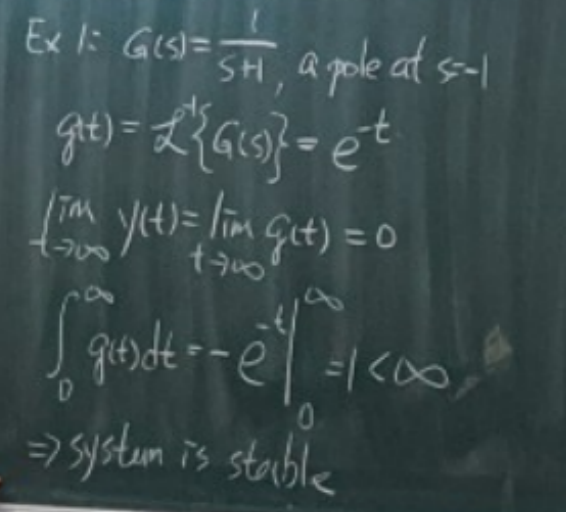 Ex 1: G(s) = 1/(s+1), a pole at s=-1
g(t) = ℒ⁻¹{G(s)} = e^{-t}
lim_{t→∞} y(t) = lim_{t→∞} g(t) = 0
∫_0^∞ g(t)dt = -e^{-t}|_0^∞ = 1 < ∞
⇒ system is stable